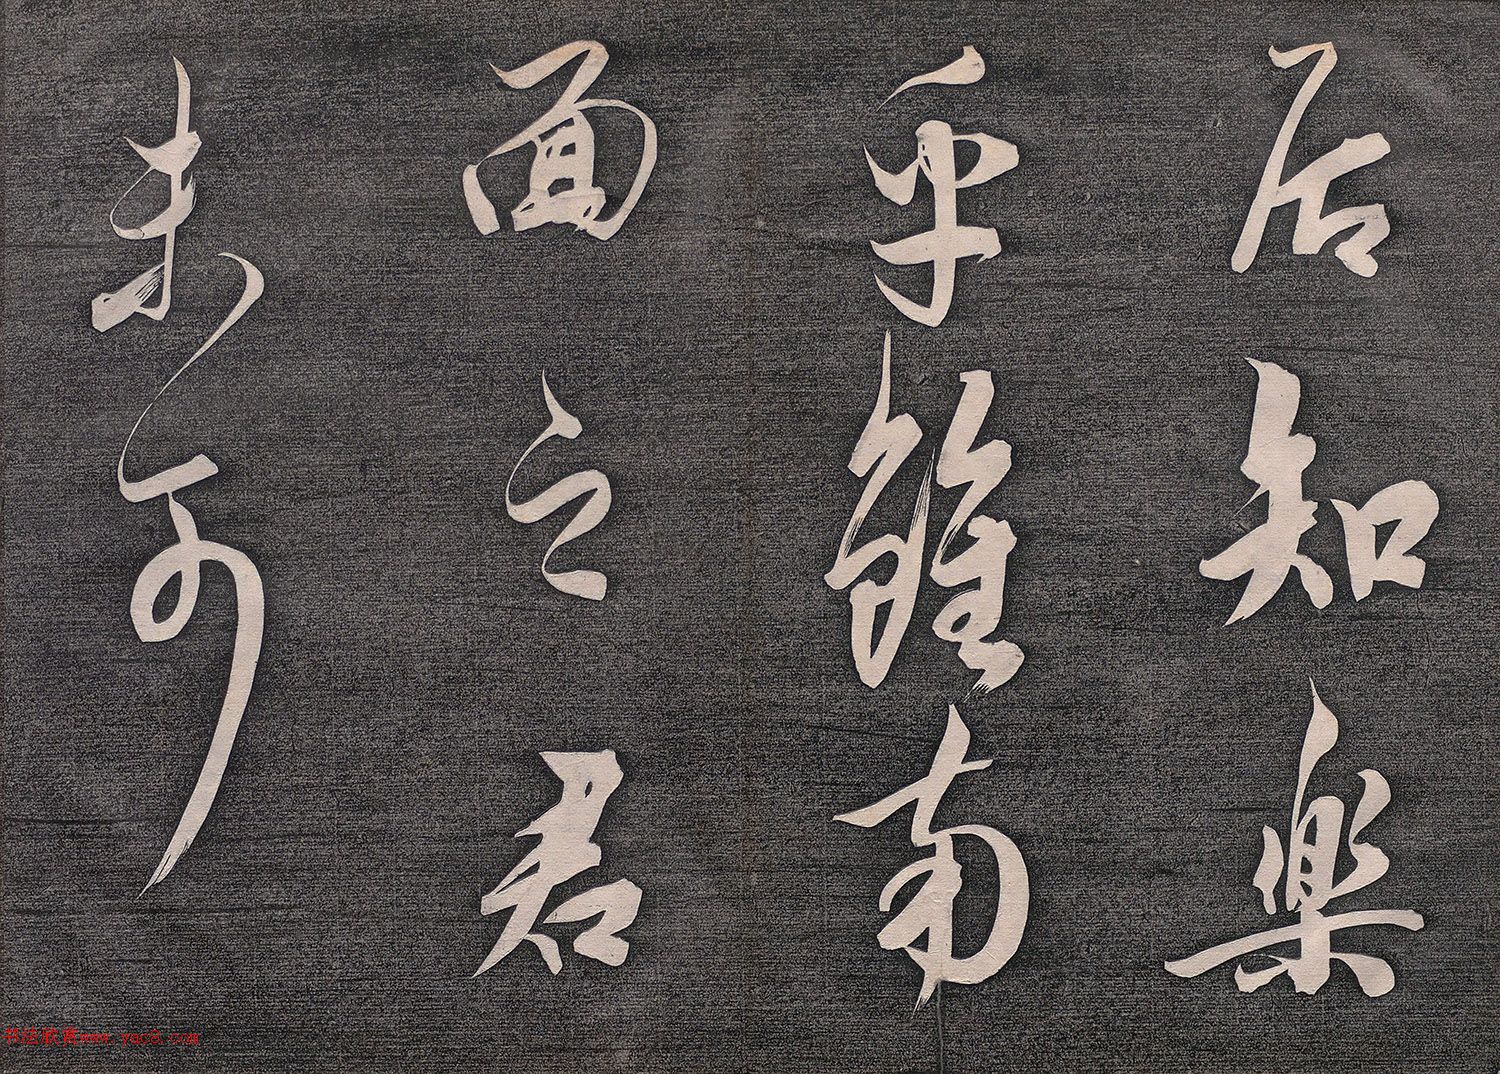 居知樂
乎雖南
面之君
未可
书法欣赏www.yac8.com